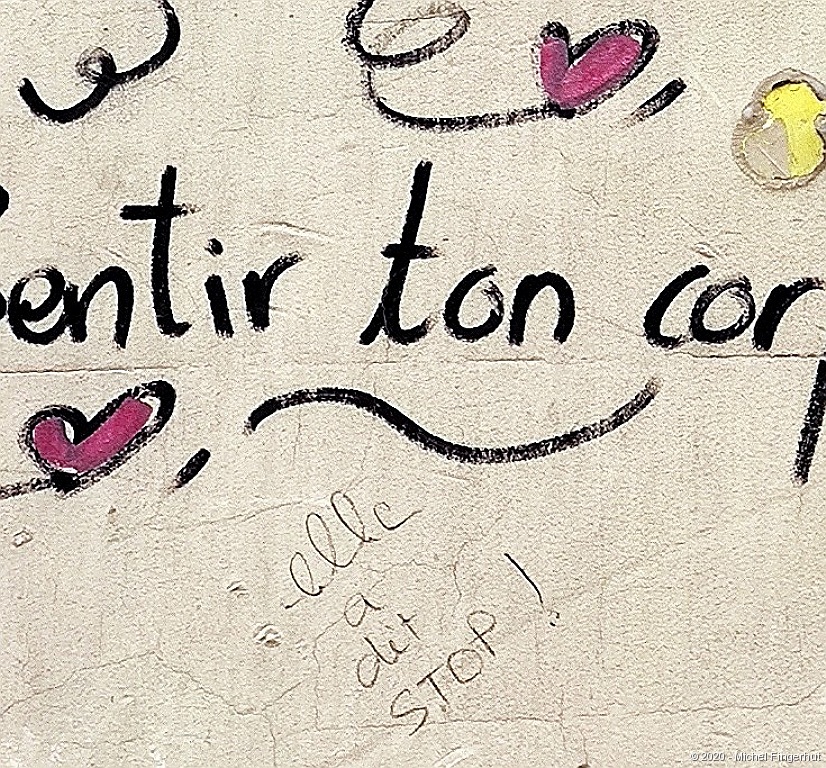 sentir ton cor
elle
a
dit
STOP !
©2020 - Michel Fingerhut